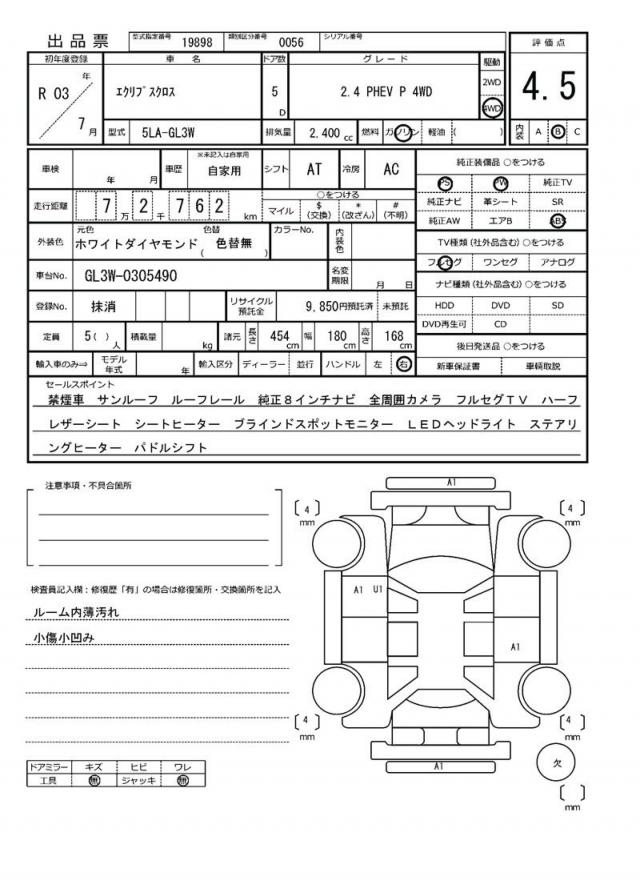 出品票 型式指定番号 19898 類別区分番号 0056 シリアル番号
初年度登録 車名 ドア数 グレード 駆動 評価点
R 03 年 7 月 エクリプスクロス 5 D 2.4 PHEV P 4WD 2WD 4WD 4.5
型式 5LA-GL3W 排気量 2,400 cc 燃料 ガソリン 軽油 ( ) 内装 A B C
車検 年 月 車歴 ※未記入は自家用 自家用 シフト AT 冷房 AC
純正装備品 ○をつける
PS PW 純正TV
純正ナビ 革シート SR
純正AW エアB ABS
走行距離 7 万 2 千 7 6 2 km ○をつける マイル $ (交換) * (改ざん) # (不明)
TV種類 (社外品含む) ○をつける
フルセグ ワンセグ アナログ
外装色 元色 ホワイトダイヤモンド 色替 ( 色替無 ) カラーNo. 内装色
車台No. GL3W-0305490 名変期限 月 日
ナビ種類 (社外品含む) ○をつける
HDD DVD SD
DVD再生可 CD
登録No. 抹消 リサイクル預託金 9,850円預託済 未預託
定員 5( ) 人 積載量 kg 諸元 長さ 454 cm 幅 180 cm 高さ 168 cm
後日発送品 ○をつける
新車保証書 車輌取説
輸入車のみ⇒ モデル年式 年 輸入区分 ディーラー 並行 ハンドル 左 右
セールスポイント
禁煙車 サンルーフ ルーフレール 純正8インチナビ 全周囲カメラ フルセグTV ハーフ
レザーシート シートヒーター ブラインドスポットモニター LEDヘッドライト ステアリ
ングヒーター パドルシフト
注意事項・不具合箇所
検査員記入欄：修復歴「有」の場合は修復箇所・交換箇所を記入
ルーム内薄汚れ
小傷小凹み
ドアミラー キズ ヒビ ワレ
工具 無 ジャッキ 無
A1
4 mm
4 mm
A1 U1
A1
4 mm
4 mm
A1
欠
mm